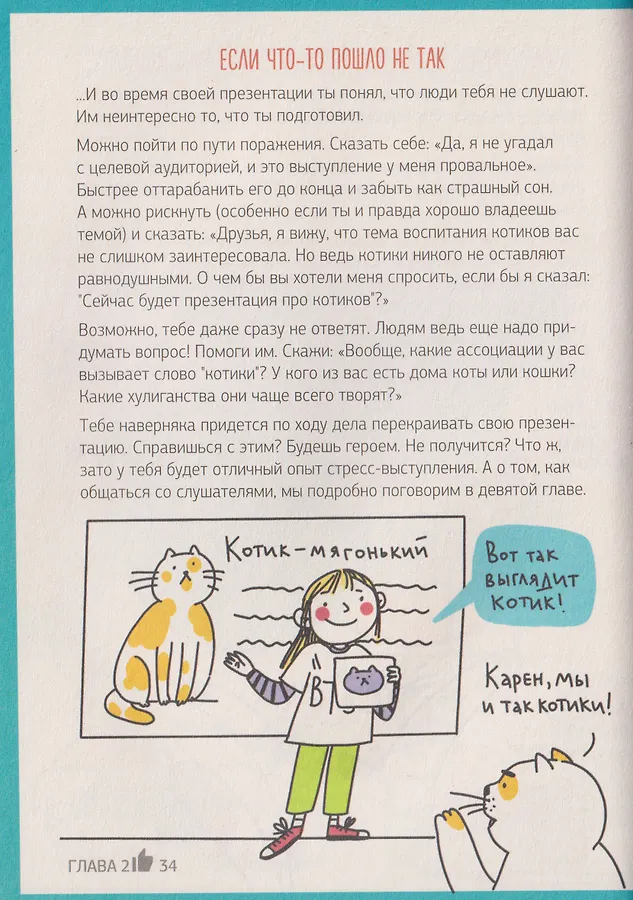 ЕСЛИ ЧТО-ТО ПОШЛО НЕ ТАК
...И во время своей презентации ты понял, что люди тебя не слушают.
Им неинтересно то, что ты подготовил.
Можно пойти по пути поражения. Сказать себе: «Да, я не угадал
с целевой аудиторией, и это выступление у меня провальное».
Быстрее оттарабанить его до конца и забыть как страшный сон.
А можно рискнуть (особенно если ты и правда хорошо владеешь
темой) и сказать: «Друзья, я вижу, что тема воспитания котиков вас
не слишком заинтересовала. Но ведь котики никого не оставляют
равнодушными. О чем бы вы хотели меня спросить, если бы я сказал:
"Сейчас будет презентация про котиков"?»
Возможно, тебе даже сразу не ответят. Людям ведь еще надо при-
думать вопрос! Помоги им. Скажи: «Вообще, какие ассоциации у вас
вызывает слово "котики"? У кого из вас есть дома коты или кошки?
Какие хулиганства они чаще всего творят?»
Тебе наверняка придется по ходу дела перекраивать свою презен-
тацию. Справишься с этим? Будешь героем. Не получится? Что ж,
зато у тебя будет отличный опыт стресс-выступления. А о том, как
общаться со слушателями, мы подробно поговорим в девятой главе.
Котик-мягонький
Вот так
выглядит
котик!
Карен, мы
и так котики!
ГЛАВА 2 34